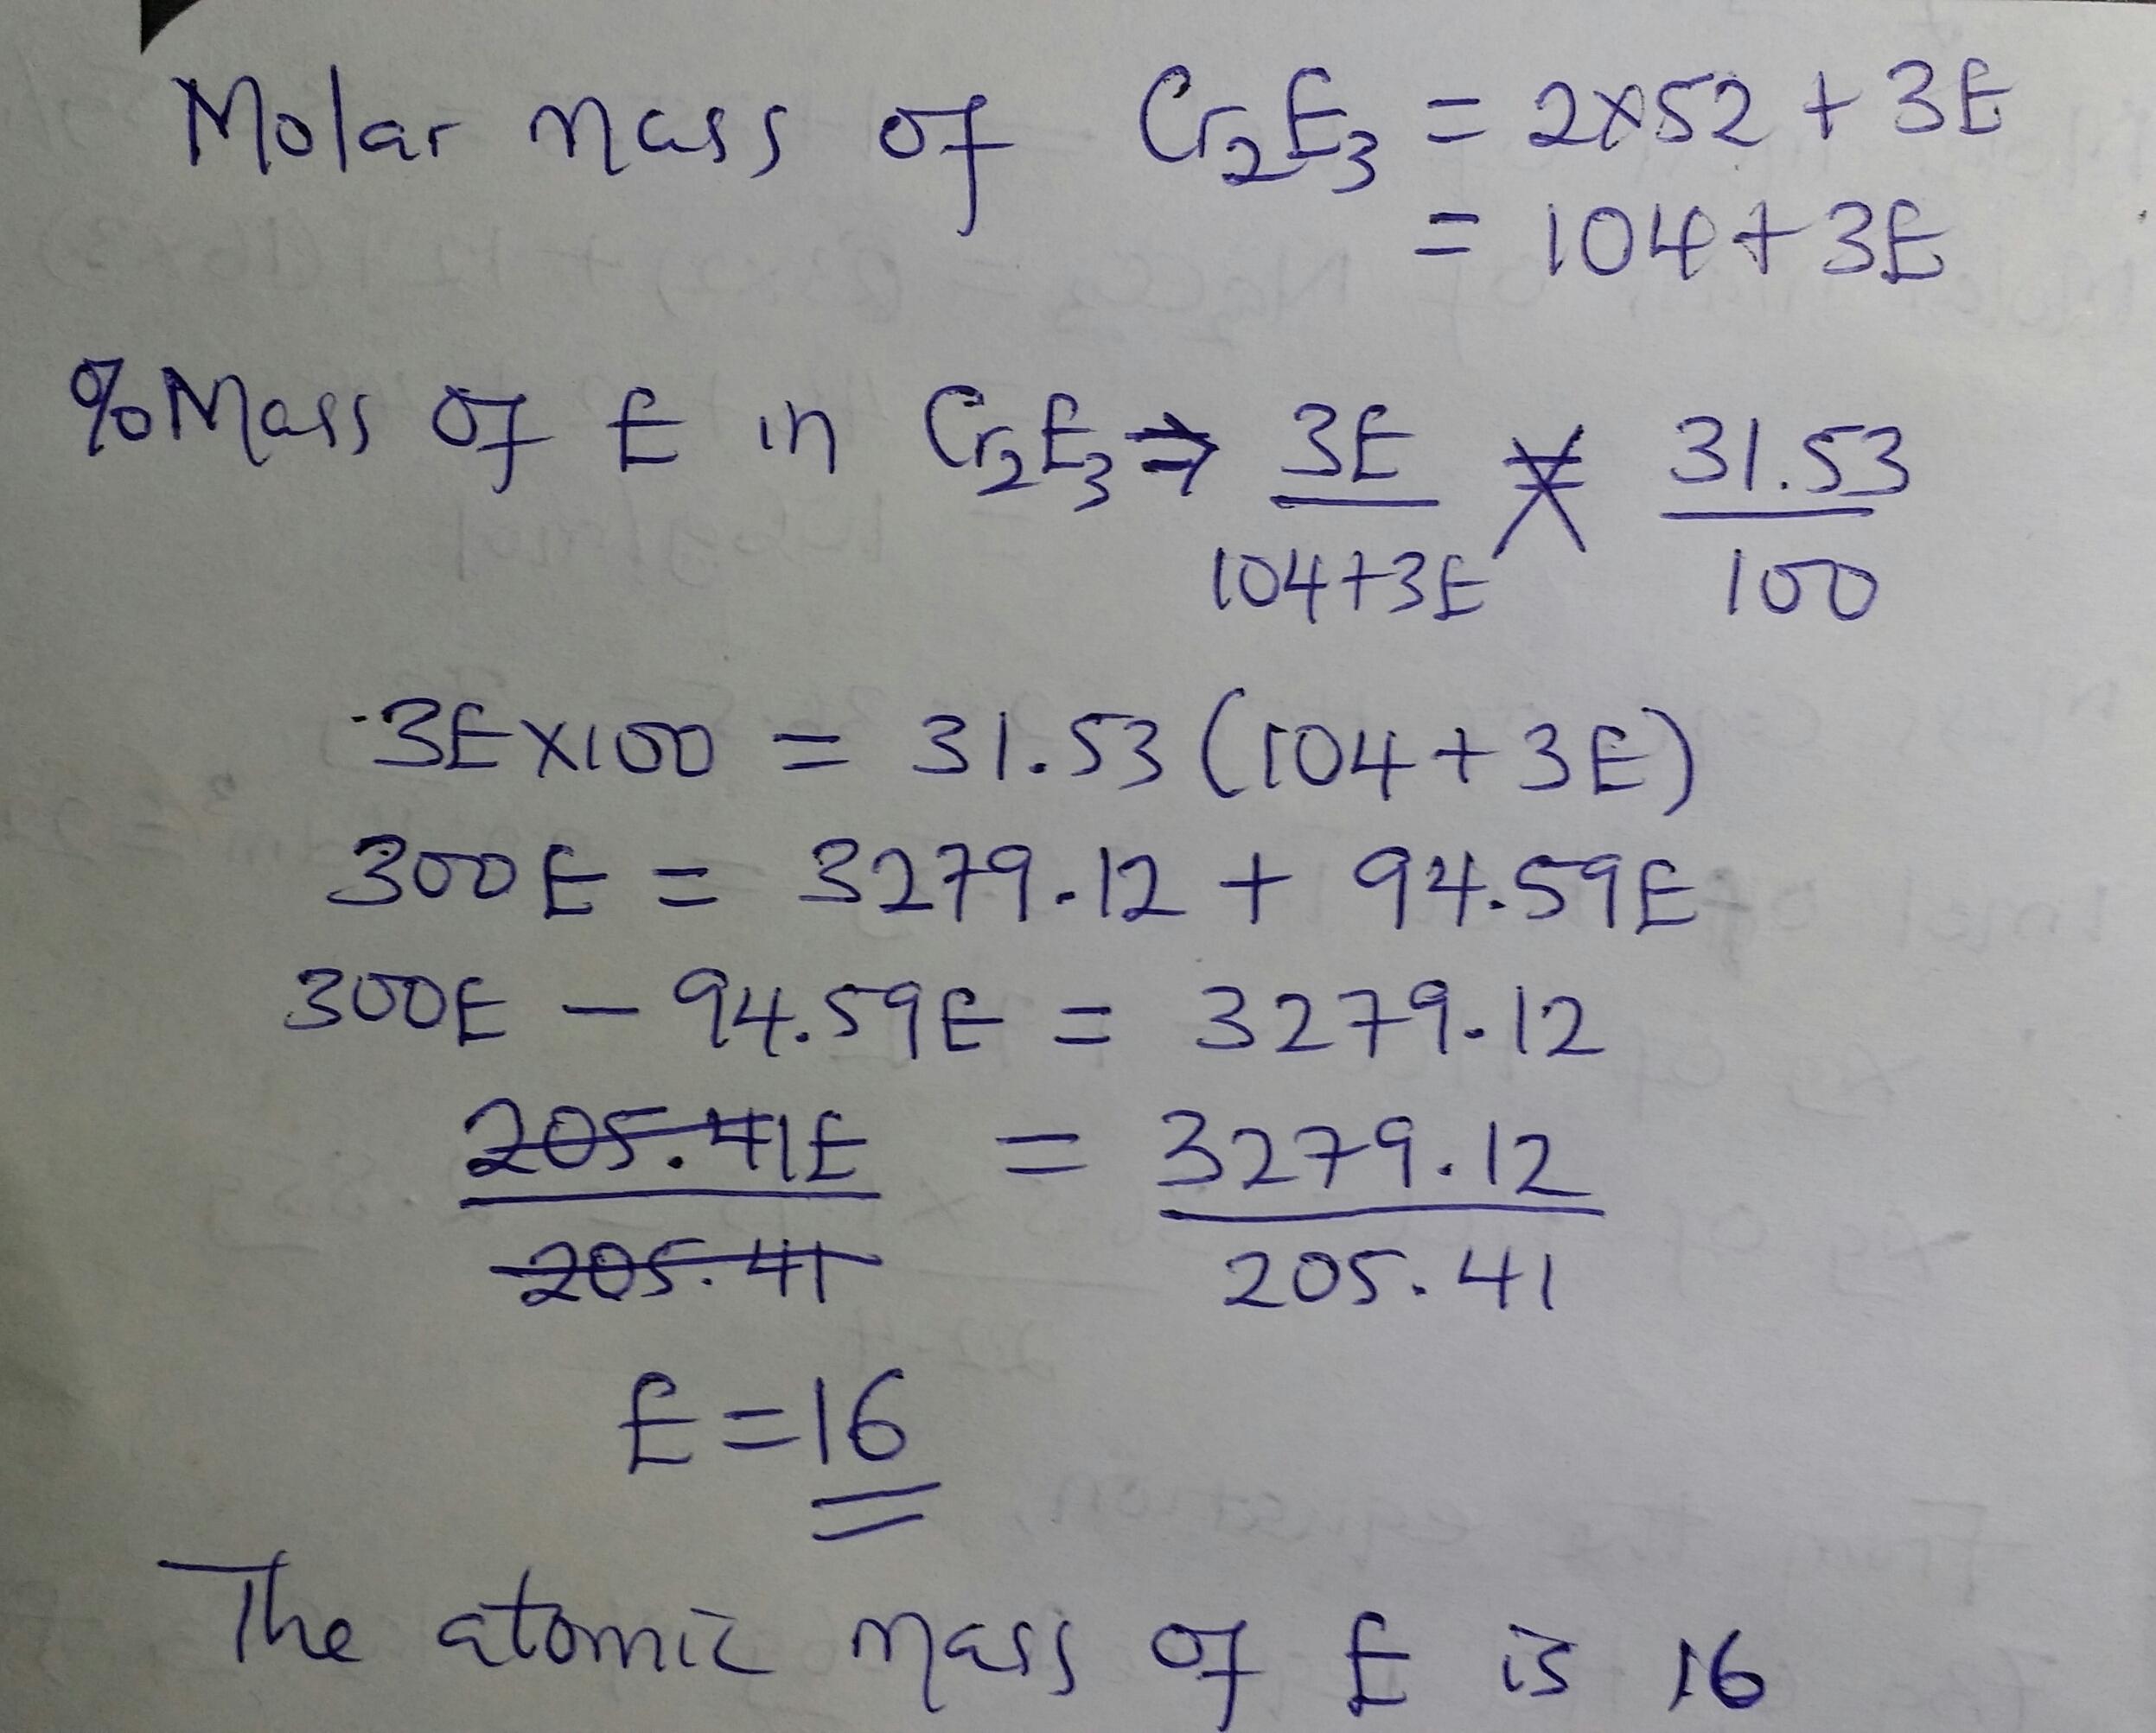 Molar mass of Cr₂E₃ = 2×52 + 3E
= 104 + 3E
%Mass of E in Cr₂E₃ ⇒ 3E/104+3E = 31.53/100
3E×100 = 31.53 (104 + 3E)
300E = 3279.12 + 94.59E
300E - 94.59E = 3279.12
205.41E/205.41 = 3279.12/205.41
E = 16
The atomic mass of E is 16